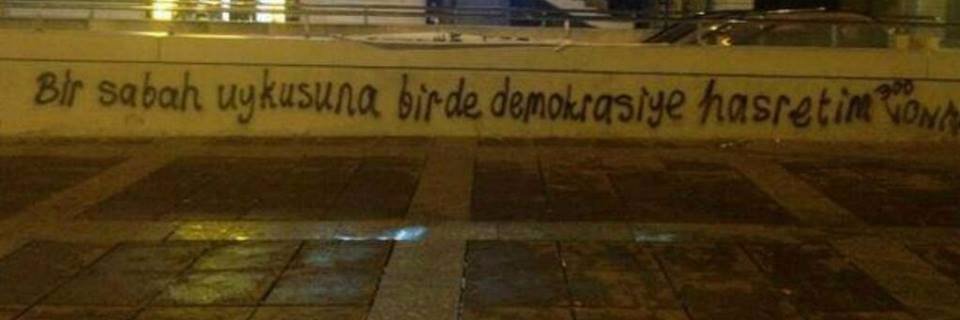 Bir sabah uykusuna birde demokrasiye hasretim